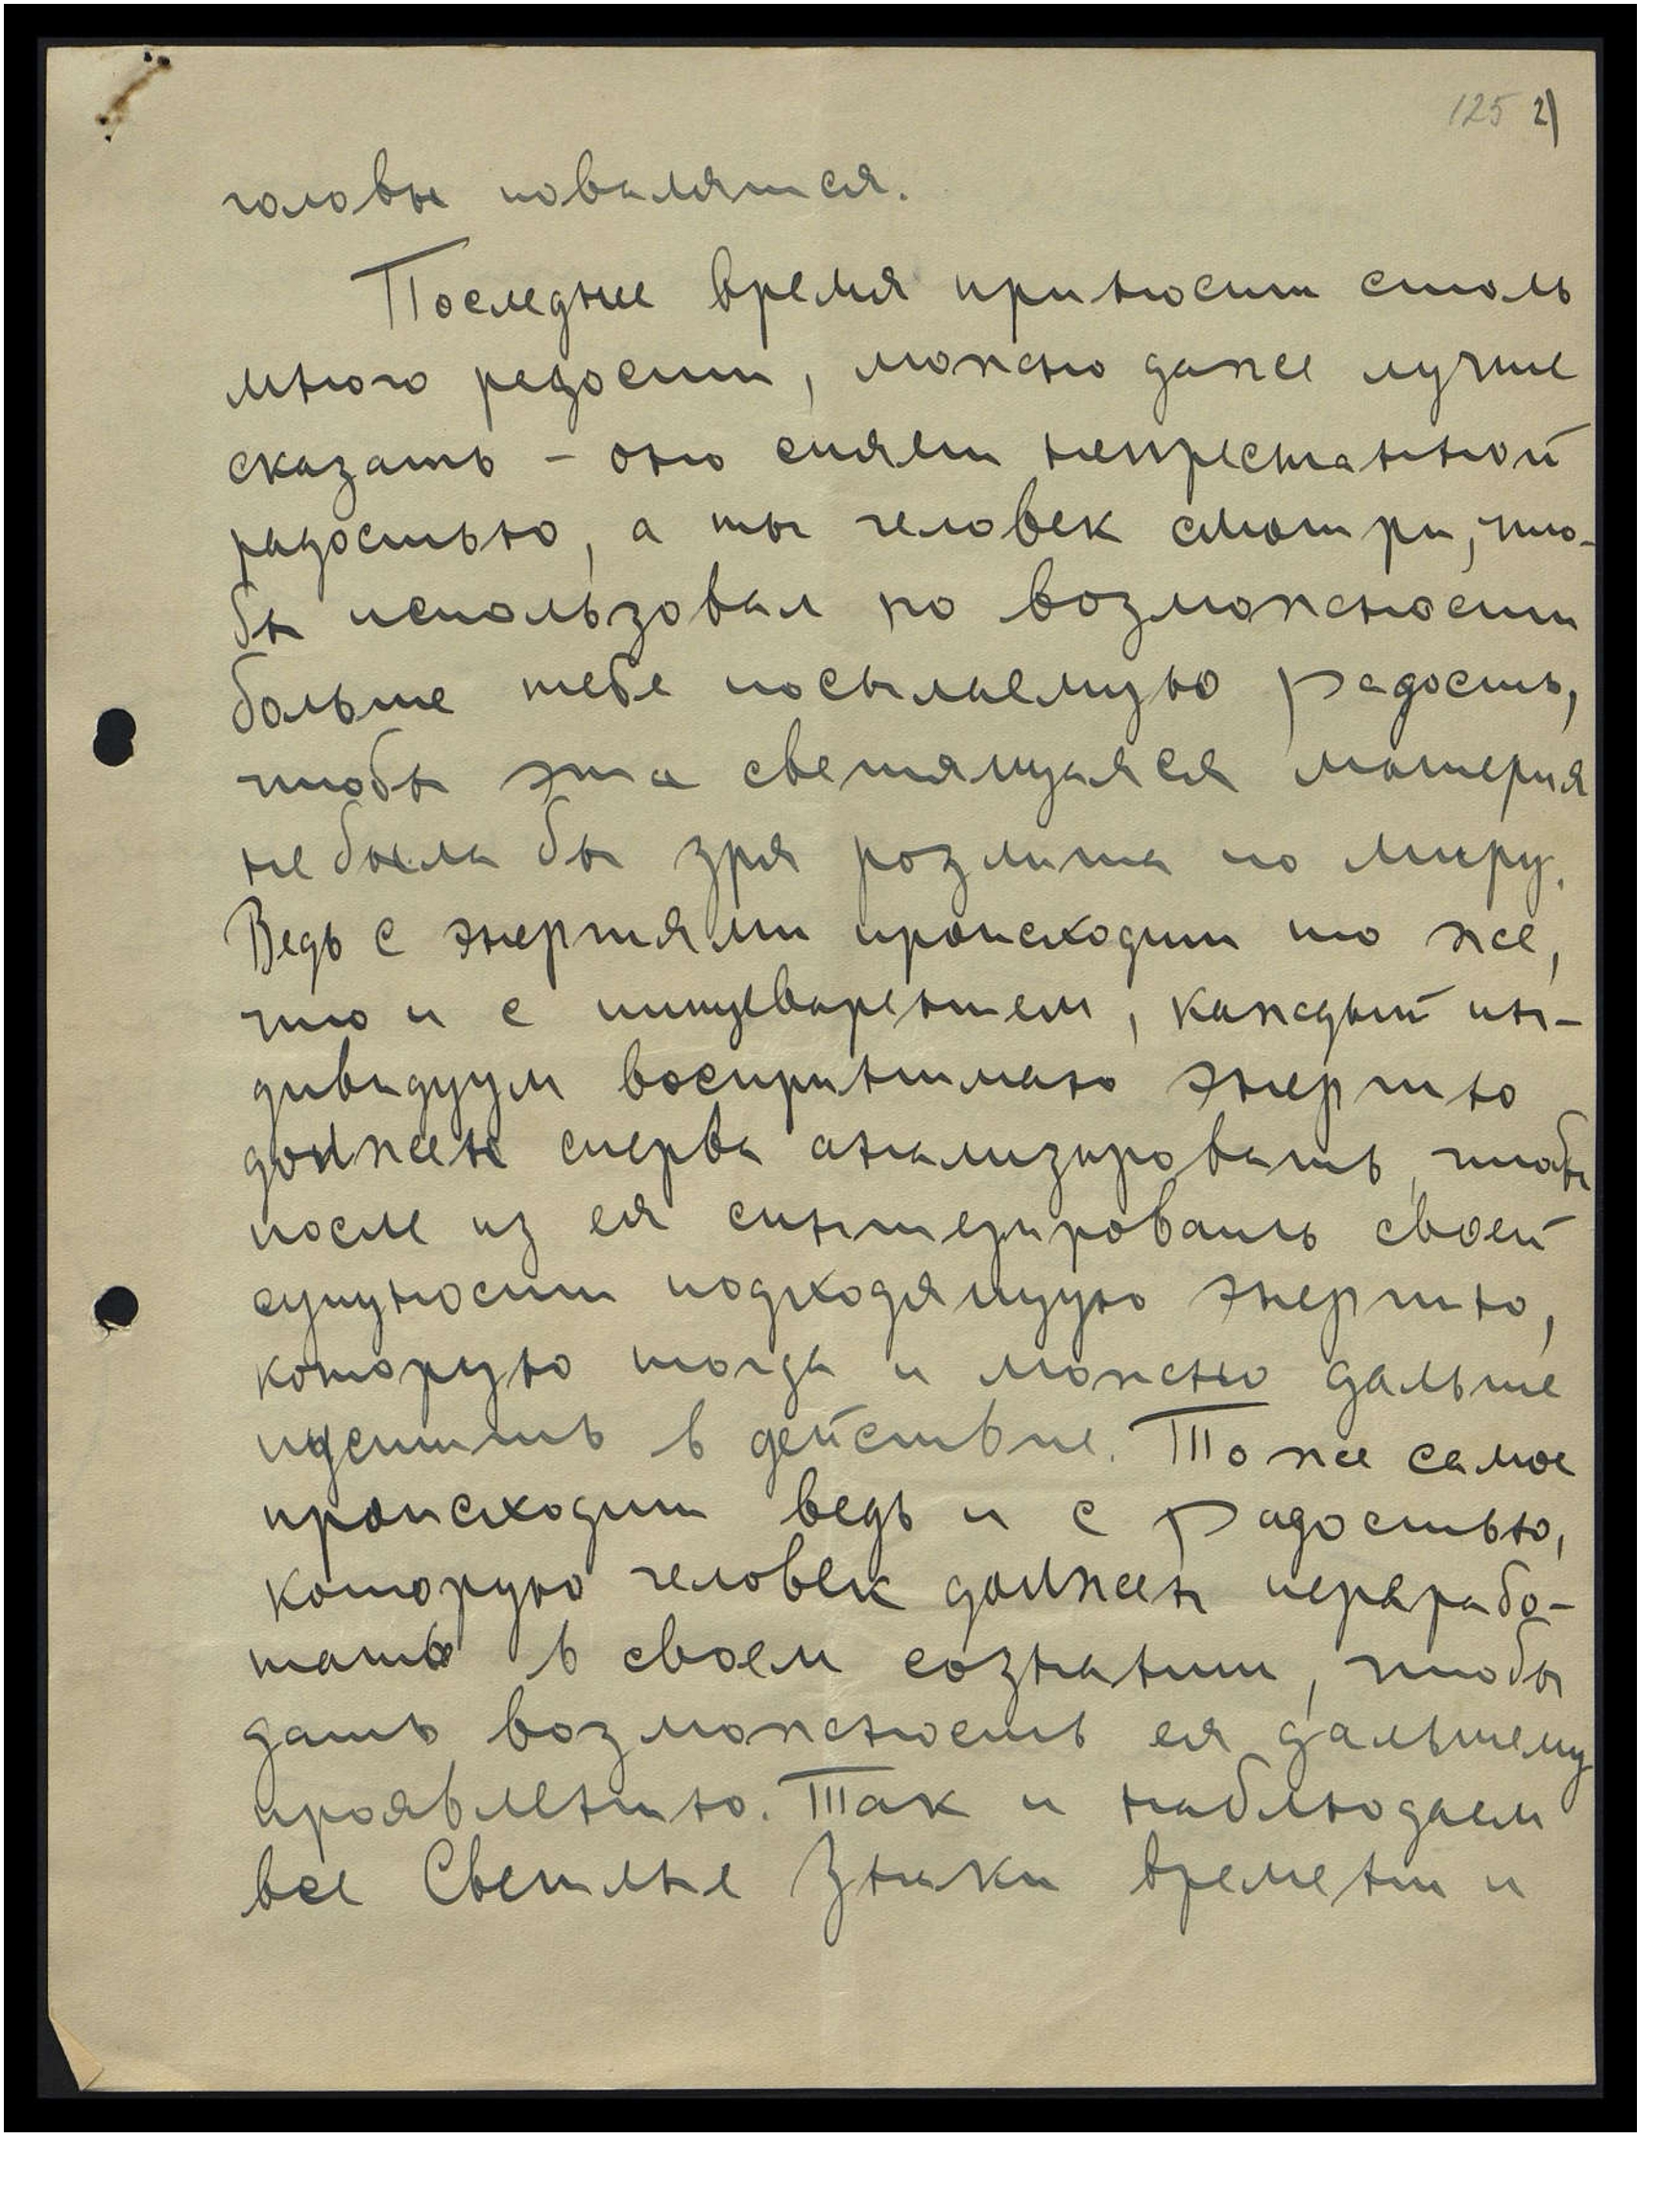 125 2)
головы повалятся.
Последнее время приносит столь
много радости, можно даже лучше
сказать - оно сияет непрестанной
радостью, а ты человек смотри, что-
бы использовал по возможности
больше тебе посылаемую радость,
чтобы эта светящаяся материя
не была бы зря розлита по миру.
Ведь с энергиями происходит то же,
что и с пищеварением, каждый ин-
дивидуум воспринимаю энергию
должен сперва анализировать, чтобы
после из ея синтезировать своей
сущности подходящую энергию,
которую тогда и можно дальше
пустить в действие. То же самое
происходит ведь и с радостью,
которую человек должен перерабо-
тать в своем сознании, чтобы
дать возможность ея дальшему
проявлению. Так и наблюдаем
все Светлые Знаки времени и